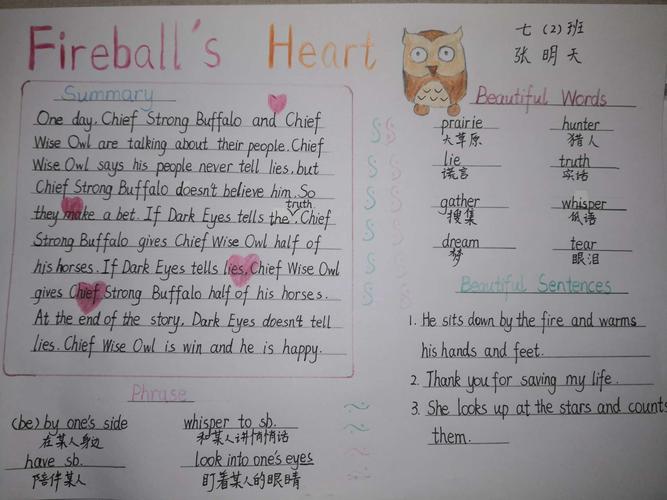 Fireball's Heart
七（2）班
张明天
Summary
One day, Chief Strong Buffalo and Chief
Wise Owl are talking about their people. Chief
Wise Owl says his people never tell lies, but
Chief Strong Buffalo doesn't believe him. So
they make a bet. If Dark Eyes tells the truth, Chief
Strong Buffalo gives Chief Wise Owl half of
his horses. If Dark Eyes tells lies, Chief Wise Owl
gives Chief Strong Buffalo half of his horses.
At the end of the story, Dark Eyes doesn't tell
lies. Chief Wise Owl is win and he is happy.
Phrase
(be) by one's side
在某人身边
whisper to sb.
和某人讲悄悄话
have sb.
陪伴某人
look into one's eyes
盯着某人的眼睛
Beautiful Words
prairie hunter
大草原 猎人
lie truth
谎言 实话
gather whisper
搜集 低语
dream tear
梦 眼泪
Beautiful Sentences
1. He sits down by the fire and warms
his hands and feet.
2. Thank you for saving my life.
3. She looks up at the stars and counts
them.